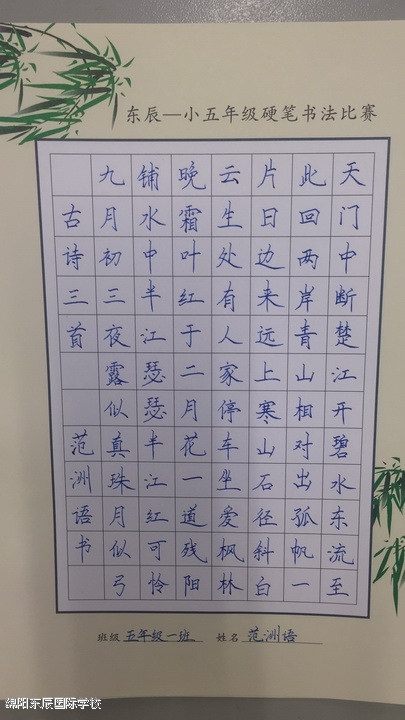 东辰一小五年级硬笔书法比赛
天门中断楚江开碧水东流至
此回两岸青山相对出孤帆一
片日边来远上寒山石径斜白
云生处有人家停车坐爱枫林
晚霜叶红于二月花一道残阳
铺水中半江瑟瑟半江红可怜
九月初三夜露似真珠月似弓
古诗三首 范洲语书
班级 五年级一班 姓名 范洲语
绵阳东辰国际学校